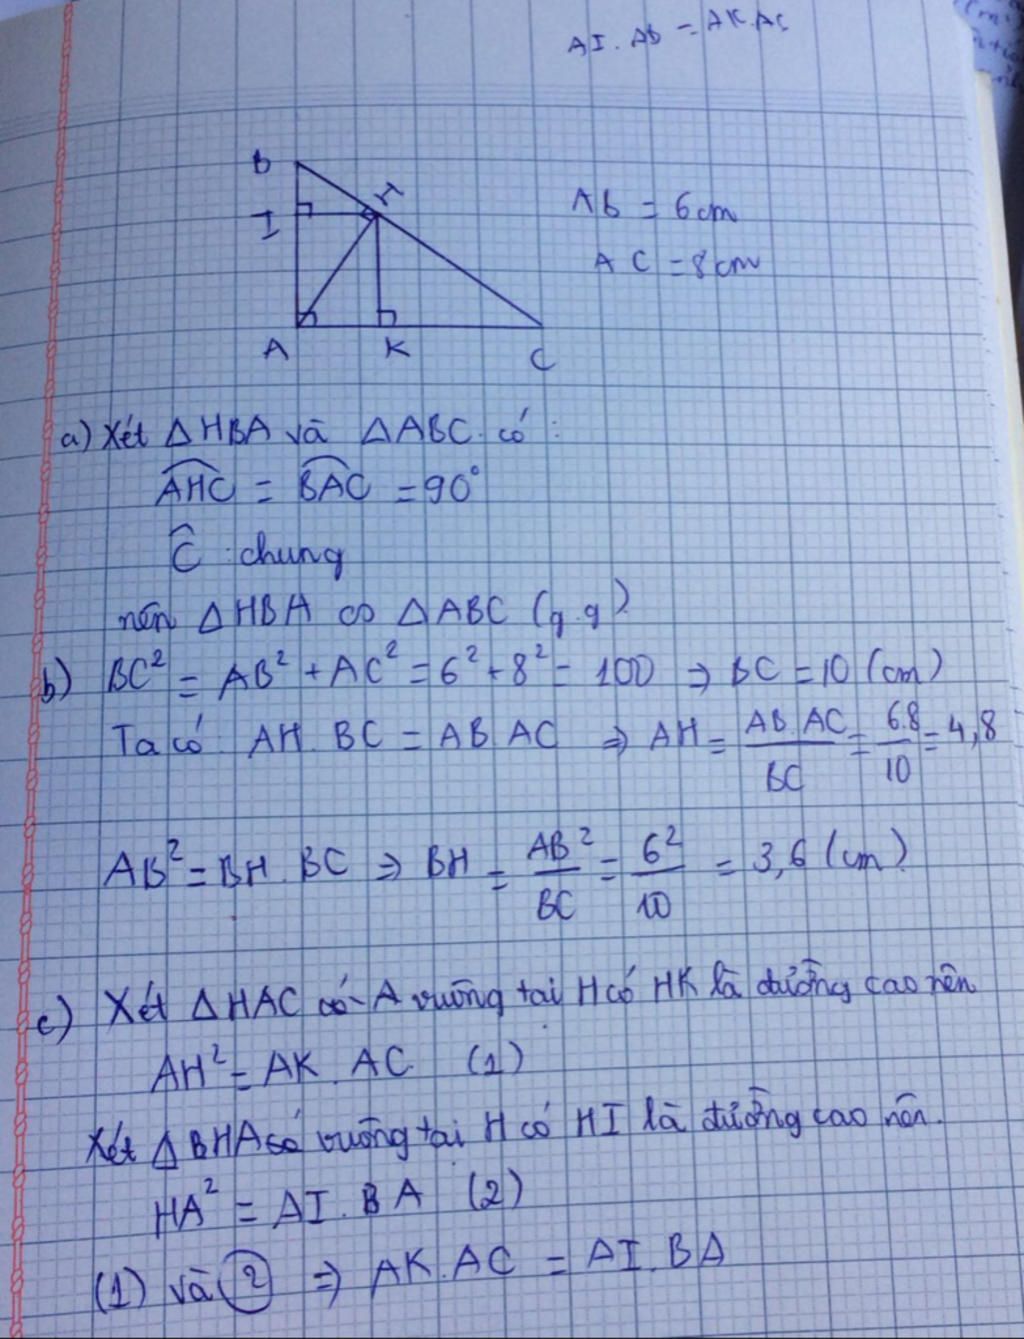 AI. Ab = AK. AC
B
I
H
A
K
C
Ab = 6cm
AC = 8cm
a) Xét △HBA và △ABC có:
AHC = BAC = 90°
Ĉ : chung
nên △HBA ∽ △ABC (g.g)
b) BC² = AB² + AC² = 6² + 8² = 100 ⇒ BC = 10 (cm)
Ta có AH. BC = AB. AC ⇒ AH = AB. AC / BC = 6.8 / 10 = 4,8
AB² = BH. BC ⇒ BH = AB² / BC = 6² / 10 = 3,6 (cm)
c) Xét △HAC có A vuông tại H có HK là đường cao nên
AH² = AK. AC (1)
Xét △BHA có vuông tại H có HI là đường cao nên.
HA² = AI. BA (2)
(1) và (2) ⇒ AK. AC = AI. BA